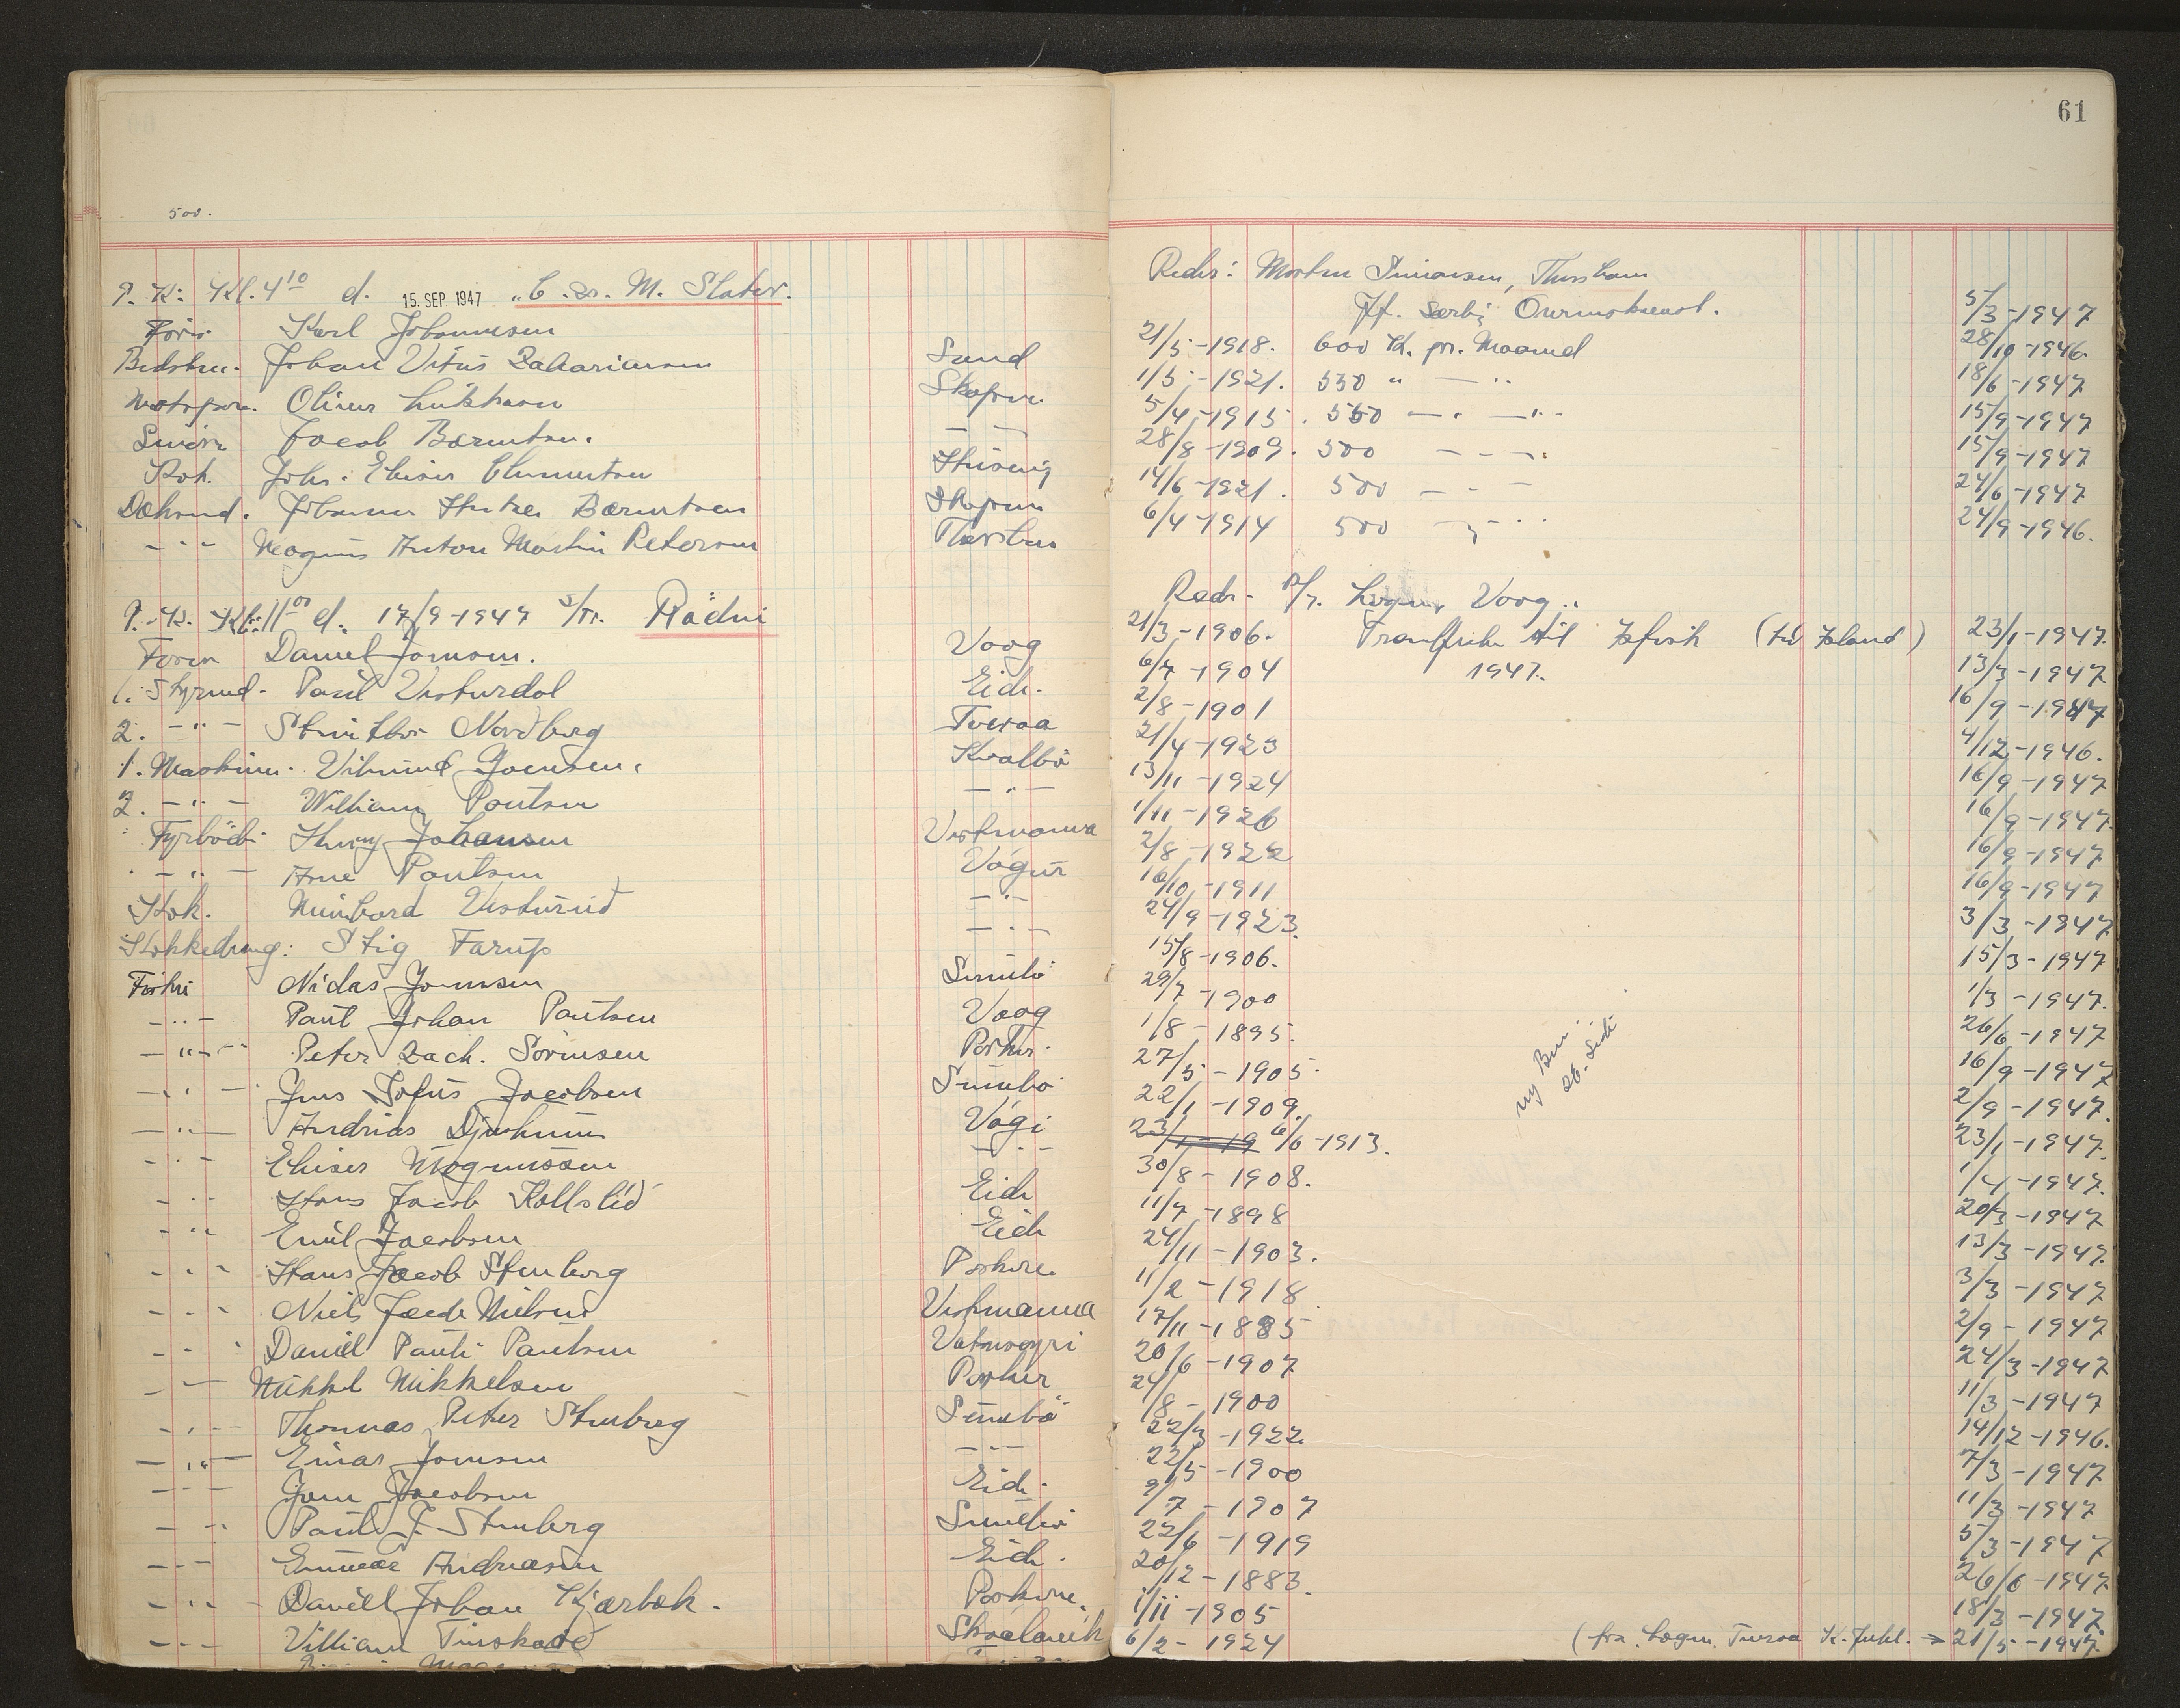 61
500.
P. K. Kl. 4 10 d. 15. SEP. 1947 "C. S. M. Slater.
Karl Johannesen
Johan Vitus Zachariassen Sand
Oliver Skopun
Jacob Berentsen. — —
Kok. Johs. Eliesar Clementsen
Johannes Berentsen Skopun
— " — Magnus Anton Martin Petersen Thorshavn
P. K. Kl. 11 00 d. 17/9-1947 S/Tr. Rädni
Daniel Joensen. Voog
1. Styrmd. Paul Vesturdal Eide.
2. — " — Nordberg Tveraa
1. Maskinm. Vilmund Joensen. Kvalbö
2. — " — William Poulsen — " —
Fyrböder Henry Johansen Vestmanna
— " — Arne Poulsen Vágur
Kok. Meinhard Vesturlid — " —
Kokkedreng: Stig Farup — " —
Fisker Niclas Joensen Sumbö
— " — Paul Johan Poulsen Voog
— " — Peter Zach. Sörensen Porker.
— " — Jens Sofus Jacobsen Sumbö
— " — Andrias Djurhuus Vági
— " — Elieser Magnussen — " —
— " — Hans Jacob Kollslíd Eide
— " — Emil Jacobsen Eide
— " — Hans Jacob Stenberg Porkere
— " — Niels Jacob Nielsen Vestmanna
— " — Daniell Pauli Poulsen Vatnsoyri
— " — Mikkel Mikkelsen Porker
— " — Thomas Peter Stenberg Sumbö
— " — Einar Joensen — " —
— " — Joen Jacobsen Eide.
— " — Paul J. Stenberg Sumbö
— " — Andreasen Eide.
— " — Daniell Johan Kjærbæk. Porkere.
— " — William Skaalevik
Reder: Morten Simonsen, Thorshavn
5/3-1947
21/5-1918. 600 K. pr. Maaned 28/10-1946.
1/5-1921. 550 " — " 18/6-1947
5/4-1915. 550 — " — " — 15/9-1947
28/8-1909. 500 — — — 15/9-1947
14/6-1921. 500 — — — 24/6-1947
6/4-1914 500 — " — 24/9-1946.
Reder. Voog.
21/3-1906. til Isfisk (til Island) 23/1-1947.
6/7-1904 1947. 13/3-1947
2/8-1901 16/9-1947
21/4-1923 4/12-1946.
13/11-1924 16/9-1947
1/11-1926 16/9-1947.
2/8-1922 16/9-1947
16/10-1911 16/9-1947
24/9-1923. 3/3-1947
15/8-1906. 15/3-1947
29/7-1900 1/3-1947.
1/8-1895. 26/6-1947
27/5-1905. 16/9-1947
22/1-1909. 2/9-1947.
23/1-19 6/6-1913. 23/1-1947.
30/8-1908. 1/4-1947.
11/7-1898 20/3-1947
24/11-1903. 13/3-1947.
11/2-1918 3/3-1947
17/11-1885 2/9-1947
20/6-1907 24/3-1947
24/8-1900 11/3-1947
22/3-1922 14/12-1946.
22/5-1900 7/3-1947
9/7-1907 11/3-1947
22/6-1919 5/3-1947
20/12-1883. 26/6-1947
1/11-1905 18/3-1947.
6/2-1924 (fra Tveraa 21/5-1947.
ny
26. Side